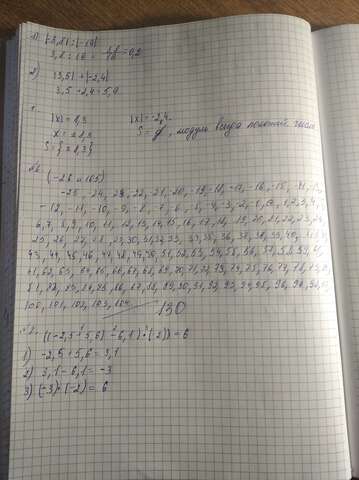 1) |-3,8| : |-19|
3,8 : 19 = = 0,2
2) |3,5| + |-2,4|
3,5 + 2,4 = 5,9
|x| = 8,3 |x| = -2,4
x = ± 8,3 S = ∅, модуль всегда полож. число
S = {± 8,3}
(-26 и 105)
-25, 24, 23, 22, 21, -20, -19, -18, -17, -16, -15, -14, -13,
-12, -11, -10, -9, -8, -7, -6, -5, -4, -3, -2, -1, 0, 1, 2, 3, 4, 5,
6, 7, 8, 9, 10, 11, 12, 13, 14, 15, 16, 17, 18, 19, 20, 21, 22, 23, 24,
25, 26, 27, 28, 29, 30, 31, 32, 33, 34, 35, 36, 37, 38, 39, 40,
43, 44, 45, 46, 47, 48, 49, 50, 51, 52, 53, 54, 55, 56, 57, 58, 59, 60,
61, 62, 63, 64, 65, 66, 67, 68, 69, 70, 71, 72, 73, 74, 75, 76, 77, 78, 79, 80,
81, 82, 83, 84, 85, 86, 87, 88, 89, 90, 91, 92, 93, 94, 95, 96, 97, 98, 99,
100, 101, 102, 103, 104. 130
((-2,5 + 5,6) - 6,1) · (2)) = 6
1) -2,5 + 5,6 = 3,1
2) 3,1 - 6,1 = -3
3) (-3) · (-2) = 6